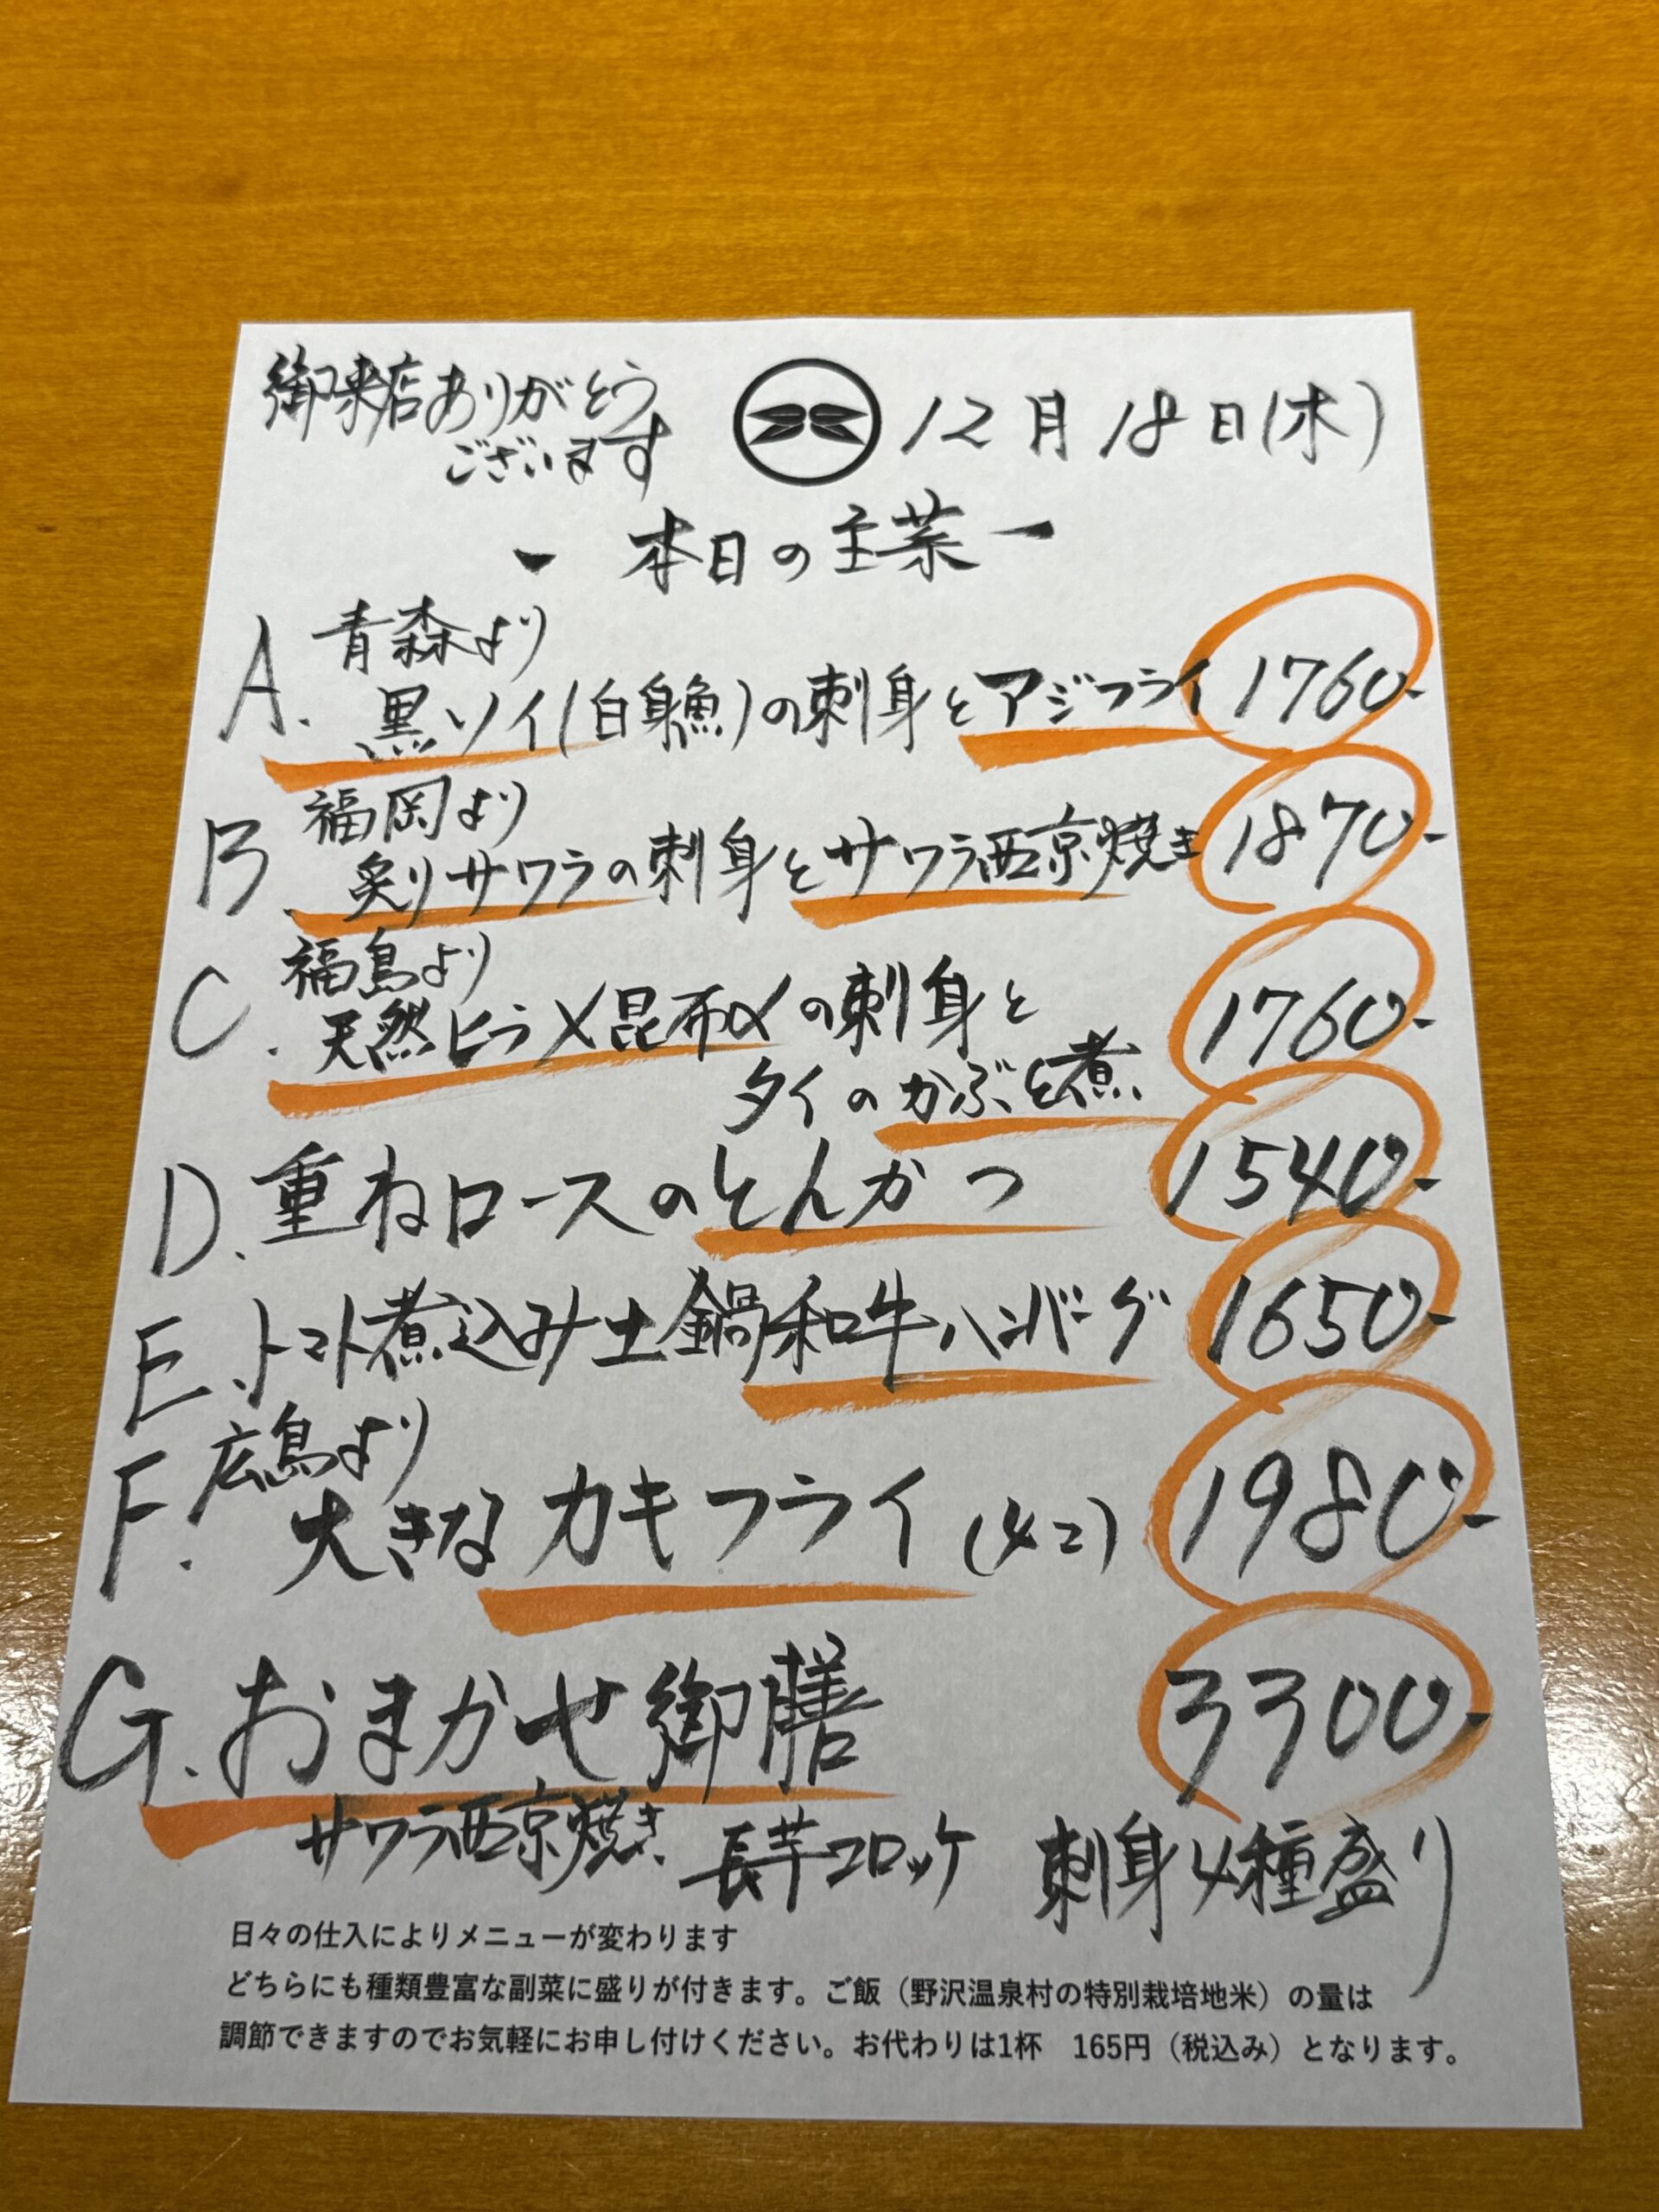 御来店ありがとう
ございます
12月18日(木)
ー 本日の主菜 ー
A. 青森より
黒ソイ(白身魚)の刺身とアジフライ 1760-
B. 福岡より
炙りサワラの刺身とサワラ西京焼き 1870-
C. 福島より
天然ヒラメ昆布〆の刺身と
タイのかぶと煮 1760-
D. 重ねロースのとんかつ 1540-
E. トマト煮込み土鍋和牛ハンバーグ 1650-
F. 広島より
大きなカキフライ(4コ) 1980-
G. おまかせ御膳 3300-
サワラ西京焼き、長芋コロッケ 刺身4種盛り
日々の仕入によりメニューが変わります
どちらにも種類豊富な副菜に盛りが付きます。ご飯（野沢温泉村の特別栽培地米）の量は
調節できますのでお気軽にお申し付けください。お代わりは1杯　165円（税込み）となります。